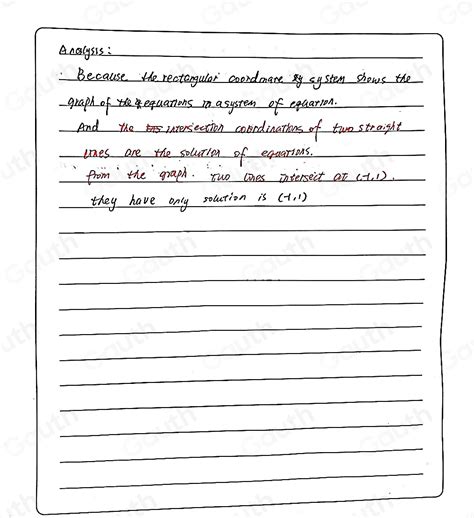 Analysis:
Because the rectangular coordinare system shows the
graph of the equations in a system of equarion.
And the intersection coordinations of two straight
lines are the solution of equations.
from the graph. Two lines intersect at (-1,1).
they have only solution is (-1,1)
Gauth